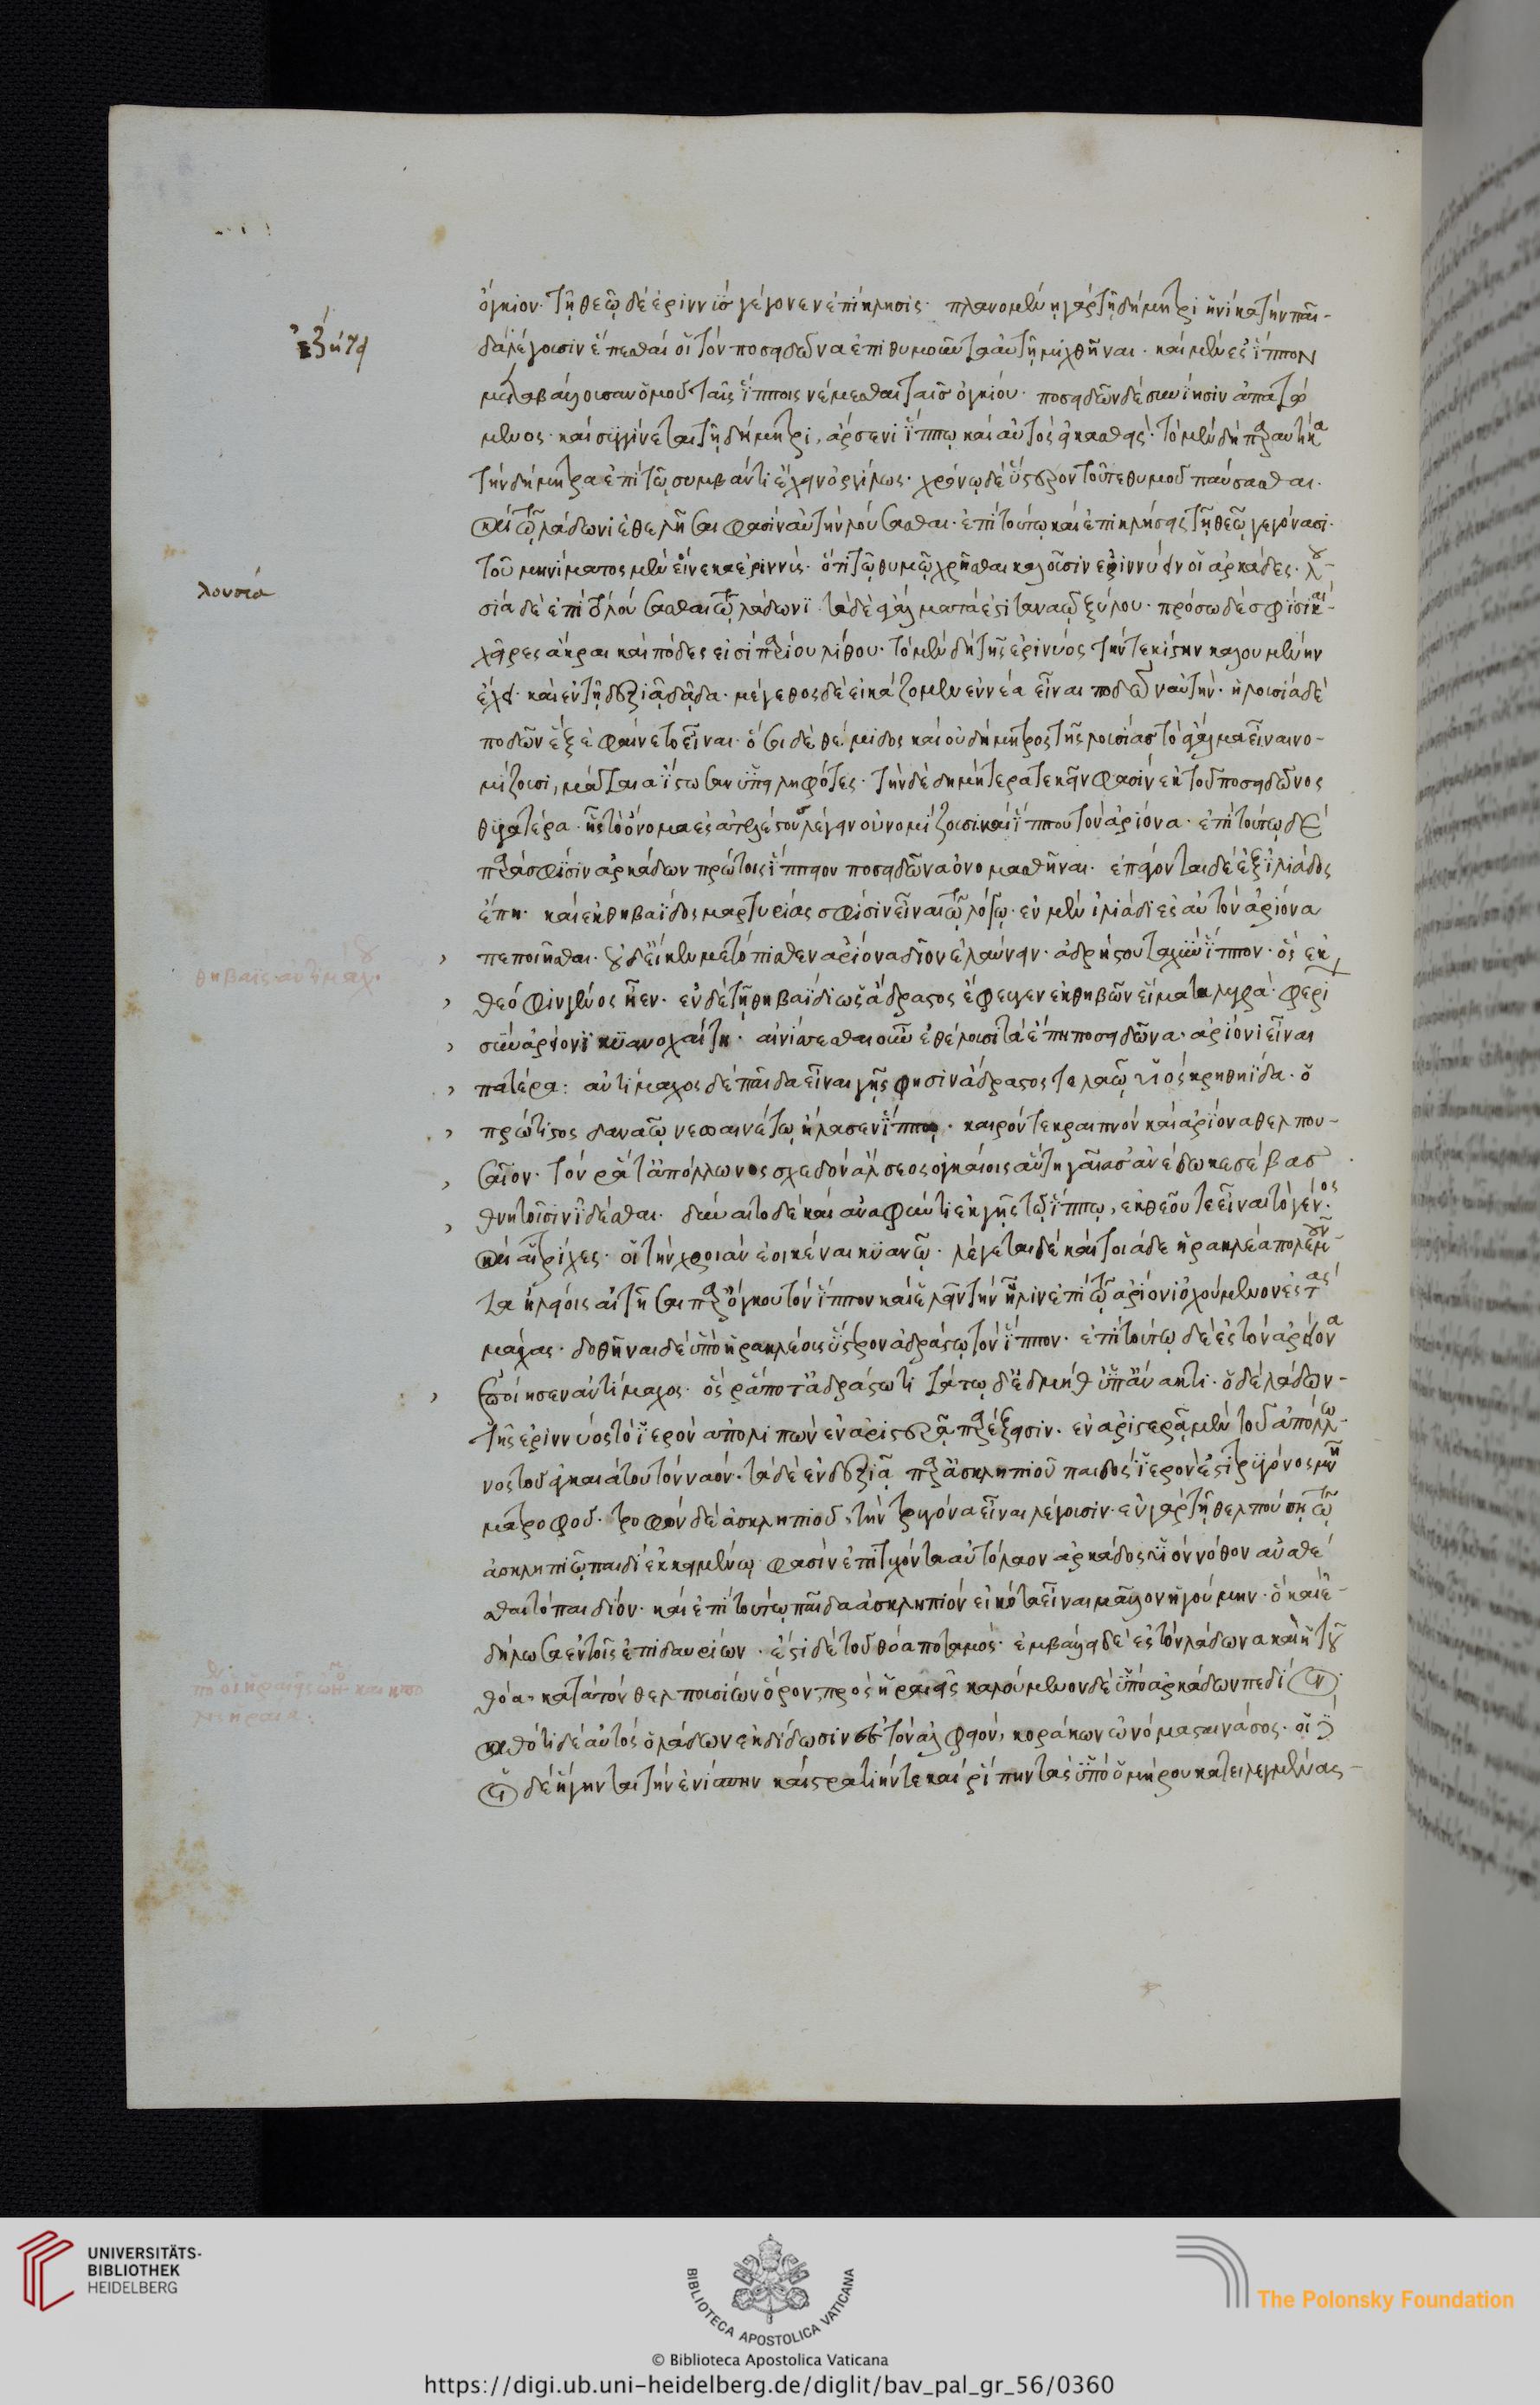 ὄγκιον· τῆ θεῶ δὲ ἐριννὺς γέγονεν ἐπίκλησις· πλανομένη γὰρ τῆ δήμητρι ἡνίκα τὴν παῖ-
δα λέγουσιν ἕπεσθαί οἱ τὸν ποσειδῶνα ἐπιθυμοῦντα αὐτῆ μιχθῆναι· καὶ μὲν ἐς ἵππον
μεταβαλοῦσαν ὁμοῦ ταῖς ἵπποις νέμεσθαι ταῖς ὀγκίου· ποσειδῶν δὲ συνίησιν ἀπατώ
μενος· καὶ συγγίνεται τῆ δήμητρι, ἄρσενι ἵππω καὶ αὐτὸς εἰκασθεὶς· τὸ μὲν δὴ παραυτίκα
τὴν δήμητρα ἐπὶ τῶ συμβάντι ἔχειν ὀργίλως· χρόνω δὲ ὕστερον τοῦ τε θυμοῦ παύσασθαι·
καὶ τῶ λάδωνι ἐθελῆσαι φασὶν αὐτὴν λούσασθαι· ἐπὶ τούτω καὶ ἐπικλήσεις τῆ θεῶ γεγόνασι·
τοῦ μηνίματος μὲν εἵνεκα ἐριννὺς· ὅτι τῶ θυμῶ χρῆσθαι καλοῦσιν ἐριννύειν οἱ ἀρκάδες· λου-
σία δὲ ἐπὶ τῶ λούσασθαι τῶ λάδωνι· τὰ δὲ ἀγάλματά ἐστι τὰ ναῶ ξύλου· πρόσωδέ σφισι καὶ
χεῖρες ἄκραι καὶ πόδες εἰσὶ παρίου λίθου· τὸ μὲν δὴ τῆς ἐρινύος τήν τε κίστην καλουμένην
ἔχει· καὶ ἐν τῆ δεξιᾶ δᾶδα· μέγεθος δὲ εἰκάζομεν ἐννέα εἶναι ποδῶν αὐτὴν· ἡ λουσία δὲ
ποδῶν ἓξ ἐφαίνετο εἶναι· ὅσοι δὲ θέμιδος καὶ οὐ δήμητρος τῆς λουσίας τὸ ἄγαλμα εἶναι νο-
μίζουσι, μάταια ἴστωσαν ὑπειληφότες· τὴν δὲ δημήτερα τεκεῖν φασὶν ἐκ τοῦ ποσειδῶνος
θυγατέρα· ἧς τὸ ὄνομα ἐς ἀτελέστους λέγειν οὐ νομίζουσι καὶ ἵππον τὸν ἀρίονα· ἐπὶ τούτω δὲ
παρὰ σφίσιν ἀρκάδων πρώτοις ἵππιον ποσειδῶνα ὀνομασθῆναι· ἐπάγονται δὲ ἐξ ἰλιάδος
ἔπη· καὶ ἐκ θηβαΐδος μαρτυρίας σφίσιν εἶναι τῶ λόγω· ἐν μὲν ἰλιάδι ἐς αὐτὸν ἀρίονα
πεποιῆσθαι· οὐδ' εἴ κεν μετόπισθεν ἀρίονα δῖον ἐλαύνειν· ἀδρήστου ταχὺν ἵππον· ὃς ἐκ
θεόφιν γένος ἦεν· ἐν δὲ τῆ θηβαΐδι ὡς ἄδραστος ἔφευγεν ἐκ θηβῶν εἵματα λυγρὰ φερι
σὺν ἀρίονι κυανοχαίτη· αἰνίσσεσθαι οὖν ἐθέλουσι τὰ ἔπη ποσειδῶνα· ἀρίονι εἶναι
πατέρα: ἀντίμαχος δὲ παῖδα εἶναι γῆς φησὶν ἄδραστος ταλαῶ υἱὸς κρηθηΐδα· ὁ
πρώτιστος δαναῶν εσαινέτω ἤλασεν ἵππω· καιρόν τε κραιπνὸν καὶ ἀρίονα θελπου-
σαῖον· τόν ῥά τ' ἀπόλλωνος σχεδὸν ἄλσεος ὀγκαίοις αὐτὴ γαῖα ἀνέδωκε σέβας
θνητοῖσιν ἰδέσθαι· δύναιτο δὲ καὶ ἀναφύντι ἐκ γῆς τῶ ἵππω, ἐκ θεοῦ τε εἶναι τὸ γένος
καὶ αἱ τρίχες· οἱ τὴν χροιὰν ἐοικέναι κυανῶ· λέγεται δὲ καὶ τοιάδε ἡρακλέα πολεμοῦν-
τα ἠλείοις αἰτῆσαι παρ' ὄγκου τὸν ἵππον καὶ ἑλεῖν τὴν ἦλιν ἐπὶ τῶ ἀρίονι ὀχούμενον ἐς τὰς
μάχας· δοθῆναι δὲ ὑπὸ ἡρακλέους ὕστερον ἀδράστω τὸν ἵππον· ἐπὶ τούτω δὲ ἐς τὸν ἀρίονα
ἐποίησεν ἀντίμαχος· ὅς ῥά ποτ' ἀδράστω τιτάτω δ' ἐδμήθ' ὑπ' ἄνακτι· ὁ δὲ λάδων-
τῆς ἐριννύος τὸ ἱερὸν ἀπολιπὼν ἐν ἀριστερᾶ παρέξεισιν· ἐν ἀριστερᾶ μὲν τοῦ ἀπόλλω-
νος τοῦ ἐγκαιάτου τὸν ναόν· τὰ δὲ ἐν δεξιᾶ παρ' ἀσκληπιοῦ παιδὸς ἱερὸν ἐστὶ τρυγόνος μνῆ
μα τροφοῦ· τροφὸν δὲ ἀσκληπιοῦ, τὴν τρυγόνα εἶναι λέγουσιν· ἐν γὰρ τῆ θελπούση τῶ
ἀσκληπιῶ παιδὶ ἐκκειμένω φασὶν ἐπιτυχόντα αὐτόλαον ἀρκάδος υἱὸν νόθον ἀνελέ
σθαι τὸ παιδίον· καὶ ἐπὶ τούτω παῖδα ἀσκληπιὸν εἰκότα εἶναι μᾶλλον ἡγούμην· ὃ καὶ ἐ-
δήλωσα ἐν τοῖς ἐπιδαυρίων· ἔστι δὲ τουθόα ποταμὸς· ἐμβάλλει δὲ ἐς τὸν λάδωνα καὶ ἡ του
θόα· κατὰ τὸν θελπουσίων ὅρον πρὸς ἡραιεῖς καλούμενον δὲ ὑπὸ ἀρκάδων πεδίον·
καθότι δὲ αὐτὸς ὁ λάδων ἐκδίδωσιν ἐς τὸν ἀλφειόν, κοράκων ὠνόμασται νάσος· οἳ
δὲ ἥγηνται τὴν ἐνίσπην καὶ στρατίην τε καὶ ῥίπην τὰς ὑπὸ ὁμήρου κατειλεγμένας-
ἐζήτει
λουσία
θηβαις ἀντιμάχου
UNIVERSITÄTS-
BIBLIOTHEK
HEIDELBERG
BIBLIOTECA APOSTOLICA VATICANA
The Polonsky Foundation
© Biblioteca Apostolica Vaticana
https://digi.ub.uni-heidelberg.de/diglit/bav_pal_gr_56/0360